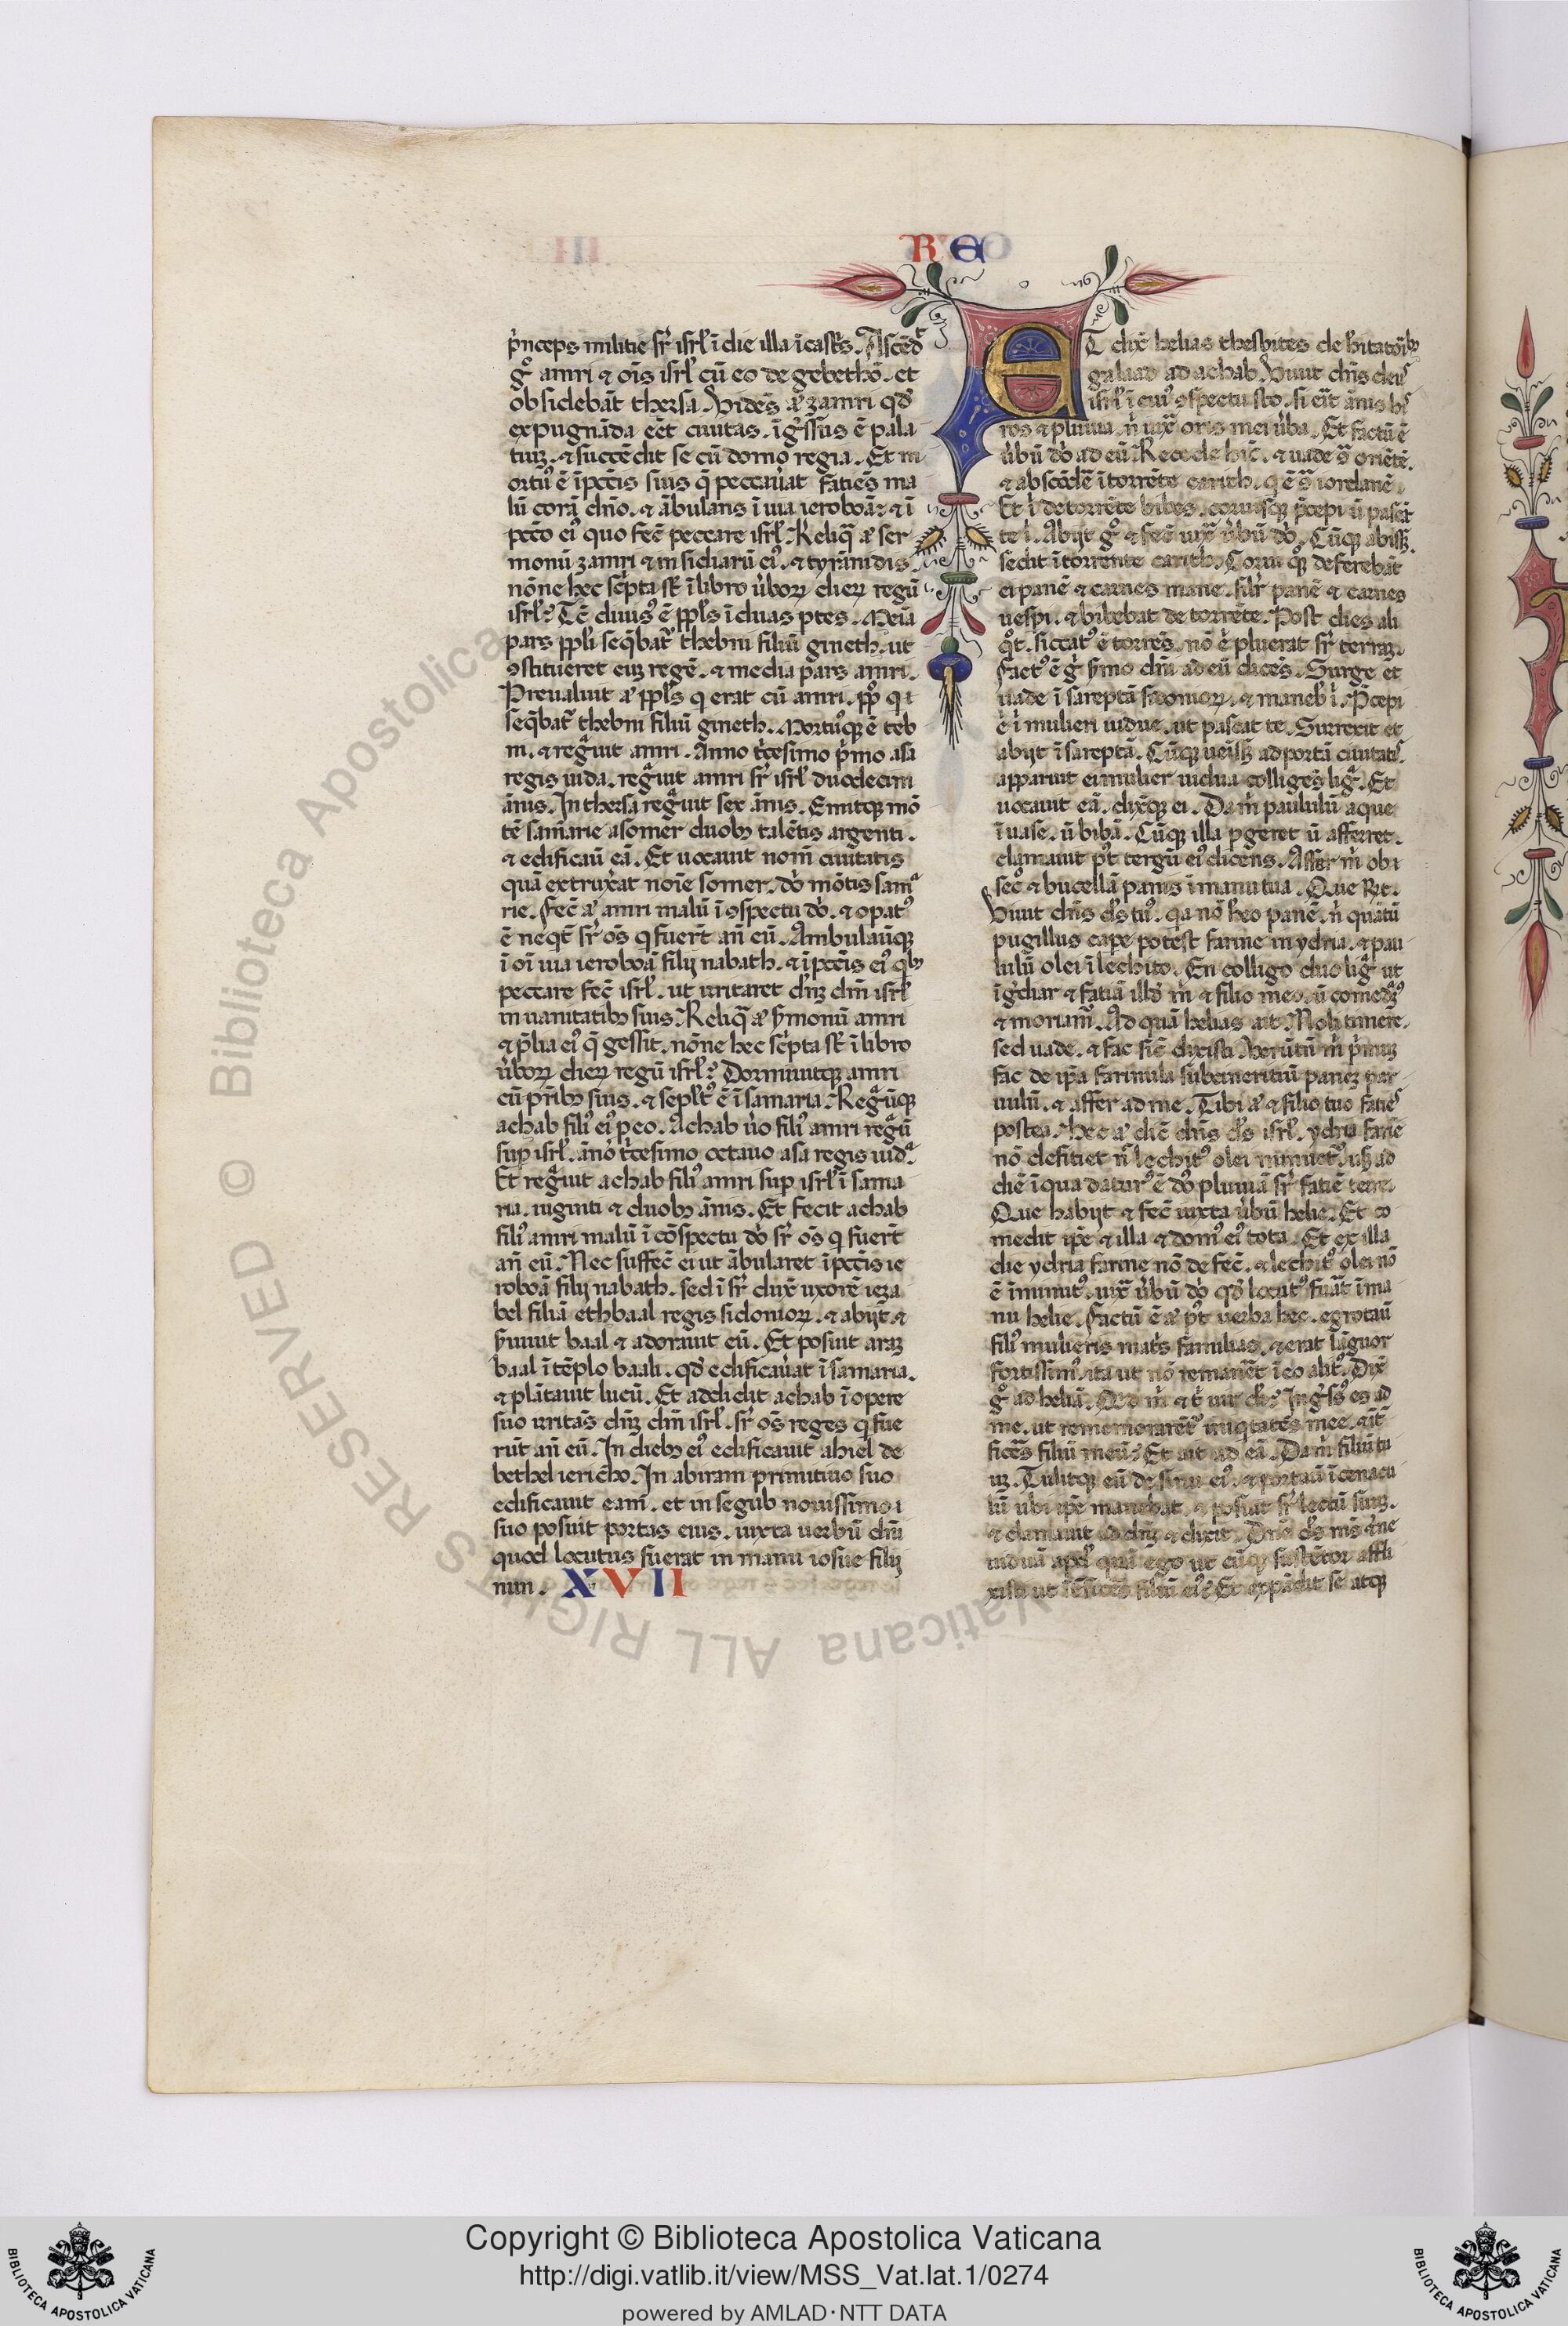 RE
p̾nceps militie sr̄ isrl̄ ī die illa ī castˢ. Ascēdᵗ
gͦ amri ⁊ oīs isrl̄ cū eo de gebethō. et
obsidebāt thersa. Videns aͥ zamri qđ
expugnāda eēt ciuitas. īgr̄ssus ē pala
tiuꝫ. ⁊ succēdit se cū domo regia. Et m
ortu᾽ ē ī pccīs suis q̄ peccau̓at fatiēs ma
lū corā dn̄o. ⁊ ābulans ī uia ieroboā: ⁊ ī
pccō ei᾽ quo fec̄ peccare isrl̄. Reliqͣ aͥ ser
monū zamri ⁊ insidiarū ei᾽. ⁊ tyrānidis.
nōne hec scͥpta st̄ ī libro ūboꝝ dieꝝ regū
isrl̄? Tc̄ diuis᾽ ē ppl̄s ī duas ptes. Meīa
pars ppl̄i seq̄batͬ thebni filiū gineth. ut
ꝯstitueret euꝫ regē. ⁊ media pars amri.
Preualuit aͥ ppl̄s q erat cū amri. pp̄lo qi
seq̄batͬ thebni filiū gineth. Mortu᾽qꝫ ē teb
ni. ⁊ regͣuit amri. Anno tͥcesimo pͥmo asa
regis iuda. regͣuit amri sr̄ isrl̄ duodecim
ānis. In thersa regͣuit sex ānis. Emitqꝫ mō
tē samarie a somer duobꝫ talētis argenti.
⁊ edificaū eā. Et uocauit nom̄ ciuitatis
quā extrux̓at noīe somer. dn̄i mōtis samͣ
rie. Fec̄ aͥ amri malū ī ꝯspectu dn̄i. ⁊ opat᾽
ē neqt̄ sr̄ oīs q fuer̄t an̄ eū. Ambulaūqꝫ
ī oī uia ieroboā filij nabath. ⁊ ī pccīs ei᾽ qͥbꝫ
peccare fec̄ isrl̄. ut irritaret dn̄ꝫ dm̄ isrl̄
in uanitatibꝫ suis. Reliqͣ aͥ s̓monū amri
⁊ p̄lia ei᾽ q̄ gessit. nōne hec scͥpta st̄ ī libro
ūboꝝ dieꝝ regū isrl̄? Dormiuitqꝫ amri
cū pr̄ibꝫ suis. ⁊ sepl̄t᾽ ē ī samaria. Regͣūqꝫ
achab fili᾽ ei᾽ p eo. Achab ūo fili᾽ amri regͣū
sup isrl̄. āno tͥcesimo octauo asa regis iudͣ.
Et regͣuit achab fili᾽ amri sup isrl̄ ī sama
ria. uiginti ⁊ duobꝫ ānis. Et fecit achab
fili᾽ amri malū ī cōspectu dn̄i sr̄ oīs q fuer̄t
an̄ eū. Nec suffec̄ ei ut ābularet ī pccīs ie
roboā filij nabath. sed ī sr̄ dux̄ uxorē ieza
bel filiā ethbaal regis sidonioꝝ. ⁊ abijt ⁊
s̓uiuit baal ⁊ adorauit eū. Et posuit araꝫ
baal ī tēplo baali. qđ edificau̓at ī samaria.
⁊ plātauit lucū. Et addidit achab ī opere
suo irritās dn̄ꝫ dm̄ isrl̄. sr̄ oīs reges q fue
rūt an̄ eū. In diebꝫ ei᾽ edificauit ahiel de
bethel iericho. In abiram primitiuo suo
edificauit eam. et in segub nouissimo i
suo posuit portas eius. iuxta uerbū dn̄i
quod locutus fuerat in manu iosue filij
nun. XVII
ET dix̄ helias thesbites de hītatoībꝫ
galaad ad achab. Viuit dn̄s deus
isrl̄ ī cui᾽ ꝯspectu sto. si eīt ānis hͥˢ
ros ⁊ pluuia. n̄ iux̄ oris mei ūba. Et factū ē
ūbū dn̄i ad eū. Recede hīc. ⁊ uade ꝯͣ oriētē.
⁊ abscōdē ī torrēte carith. q ē ꝯͣ iordanē.
Et ī de torrēte bibes. coruisqꝫ p̄cepi ū pascāt
te ī. Abijt gͦ ⁊ fec̄ iuxͣ ūbū dn̄i. Cūqꝫ abissꝫ.
sedit ī torrente carith. Corui qͦqꝫ deferebāt
ei panē ⁊ carnes mane. silr̄ panē ⁊ carnes
uespi. ⁊ bibebat de torrēte. Post dies ali
qͦt. siccat᾽ ē torrēs. nō ē̓ pluerat sr̄ terraꝫ.
Fact᾽ ē gͥ s̓mo dn̄i ad eū dicēs. Surge et
uade ī sareptā sidonioꝝ. ⁊ manebͥ ī. P̄cepi
ē̓ ī mulieri uidue. ut pascat te. Surrexit et
abijt ī sareptā. Cūqꝫ ueīssꝫ ad portā ciuitatˢ.
apparuit ei mulier uidua colligēs ligͣ. Et
uocauit eā. dix̄qꝫ ei. Da m̄ paululū aque
ī uase. ū bibā. Cūqꝫ illa pgeret ū afferret.
clamauit p᾽t tergū ei᾽ dicens. Affer m̄ obi
secͦ ⁊ bucellā panis ī manu tua. Que r̄n̄t.
Viuit dn̄s ds̄ tu᾽. qa nō h̄eo panē. n̄ quātū
pugillus cape potest farine in ydria. ⁊ pau
lulū olei ī lechito. En colligo duo ligͣ ut
īg̓diar ⁊ fatiā illđ m̄ ⁊ filio meo. ū comedͣm᾽
⁊ moriamͬ. Ad quā helias ait. Noli timere.
sed uade. ⁊ fac sic̄ dixisti. Verūtū m̄ pͥmuꝫ
fac de ip̄a farinula subcineritiū paneꝫ par
uulū. ⁊ affer ad me. Tibi aͥ ⁊ filio tuo faties
postea. Hec aͥ dic̄ dn̄s ds̄ isrl̄. ydria farīe
nō defitiet n̄ lechit᾽ olei minuetͬ. usꝫ ad
diē ī qua datur᾽ ē dn̄s pluuiā sr̄ fatiē terre.
Que habijt ⁊ fec̄ iuxta ūbū helie. Et co
medit ip̄e ⁊ illa ⁊ dom᾽ ei᾽ tota. Et ex illa
die ydria farine nō defec̄. ⁊ lechit᾽ olei nō
ē īminut᾽. iuxͣ ūbū dn̄i qđ locut᾽ fuāt ī ma
nu helie. Factū ē aͥ p᾽t uerba hec. egrotaū
fili᾽ mulieris matˢ familias. ⁊ erat lāguor
fortissim᾽. ita ut nō remanēt ī eo alit᾽. Dix̄
gͦ ad heliā. Qͥd m̄ ⁊ t̄ uir dī? Ingr̄ss᾽ es ad
me. ut rememorarētͬ iniqtates mee. ⁊ īt̄
ficēs filiū meū? Et ait ad eā. Da m̄ filiū tu
uꝫ. Tulitqꝫ eū de sinu ei᾽. ⁊ portaū ī cenacu
lū ubi ip̄e manebat. ⁊ posuit sr̄ lectū suuꝫ.
⁊ clamauit ad dn̄ꝫ ⁊ dixit. Dn̄e ds̄ m̄s ⁊ne
uiduā apđ quā ego ut cūqꝫ sustētor affli
xisti ut īt̄fitēs filiū ei᾽? Et expādit se atqꝫ
Copyright © Biblioteca Apostolica Vaticana
http://digi.vatlib.it/view/MSS_Vat.lat.1/0274
powered by AMLAD·NTT DATA
BIBLIOTECA APOSTOLICA VATICANA
BIBLIOTECA APOSTOLICA VATICANA
© Biblioteca Apostolica Vaticana ALL RIGHTS RESERVED